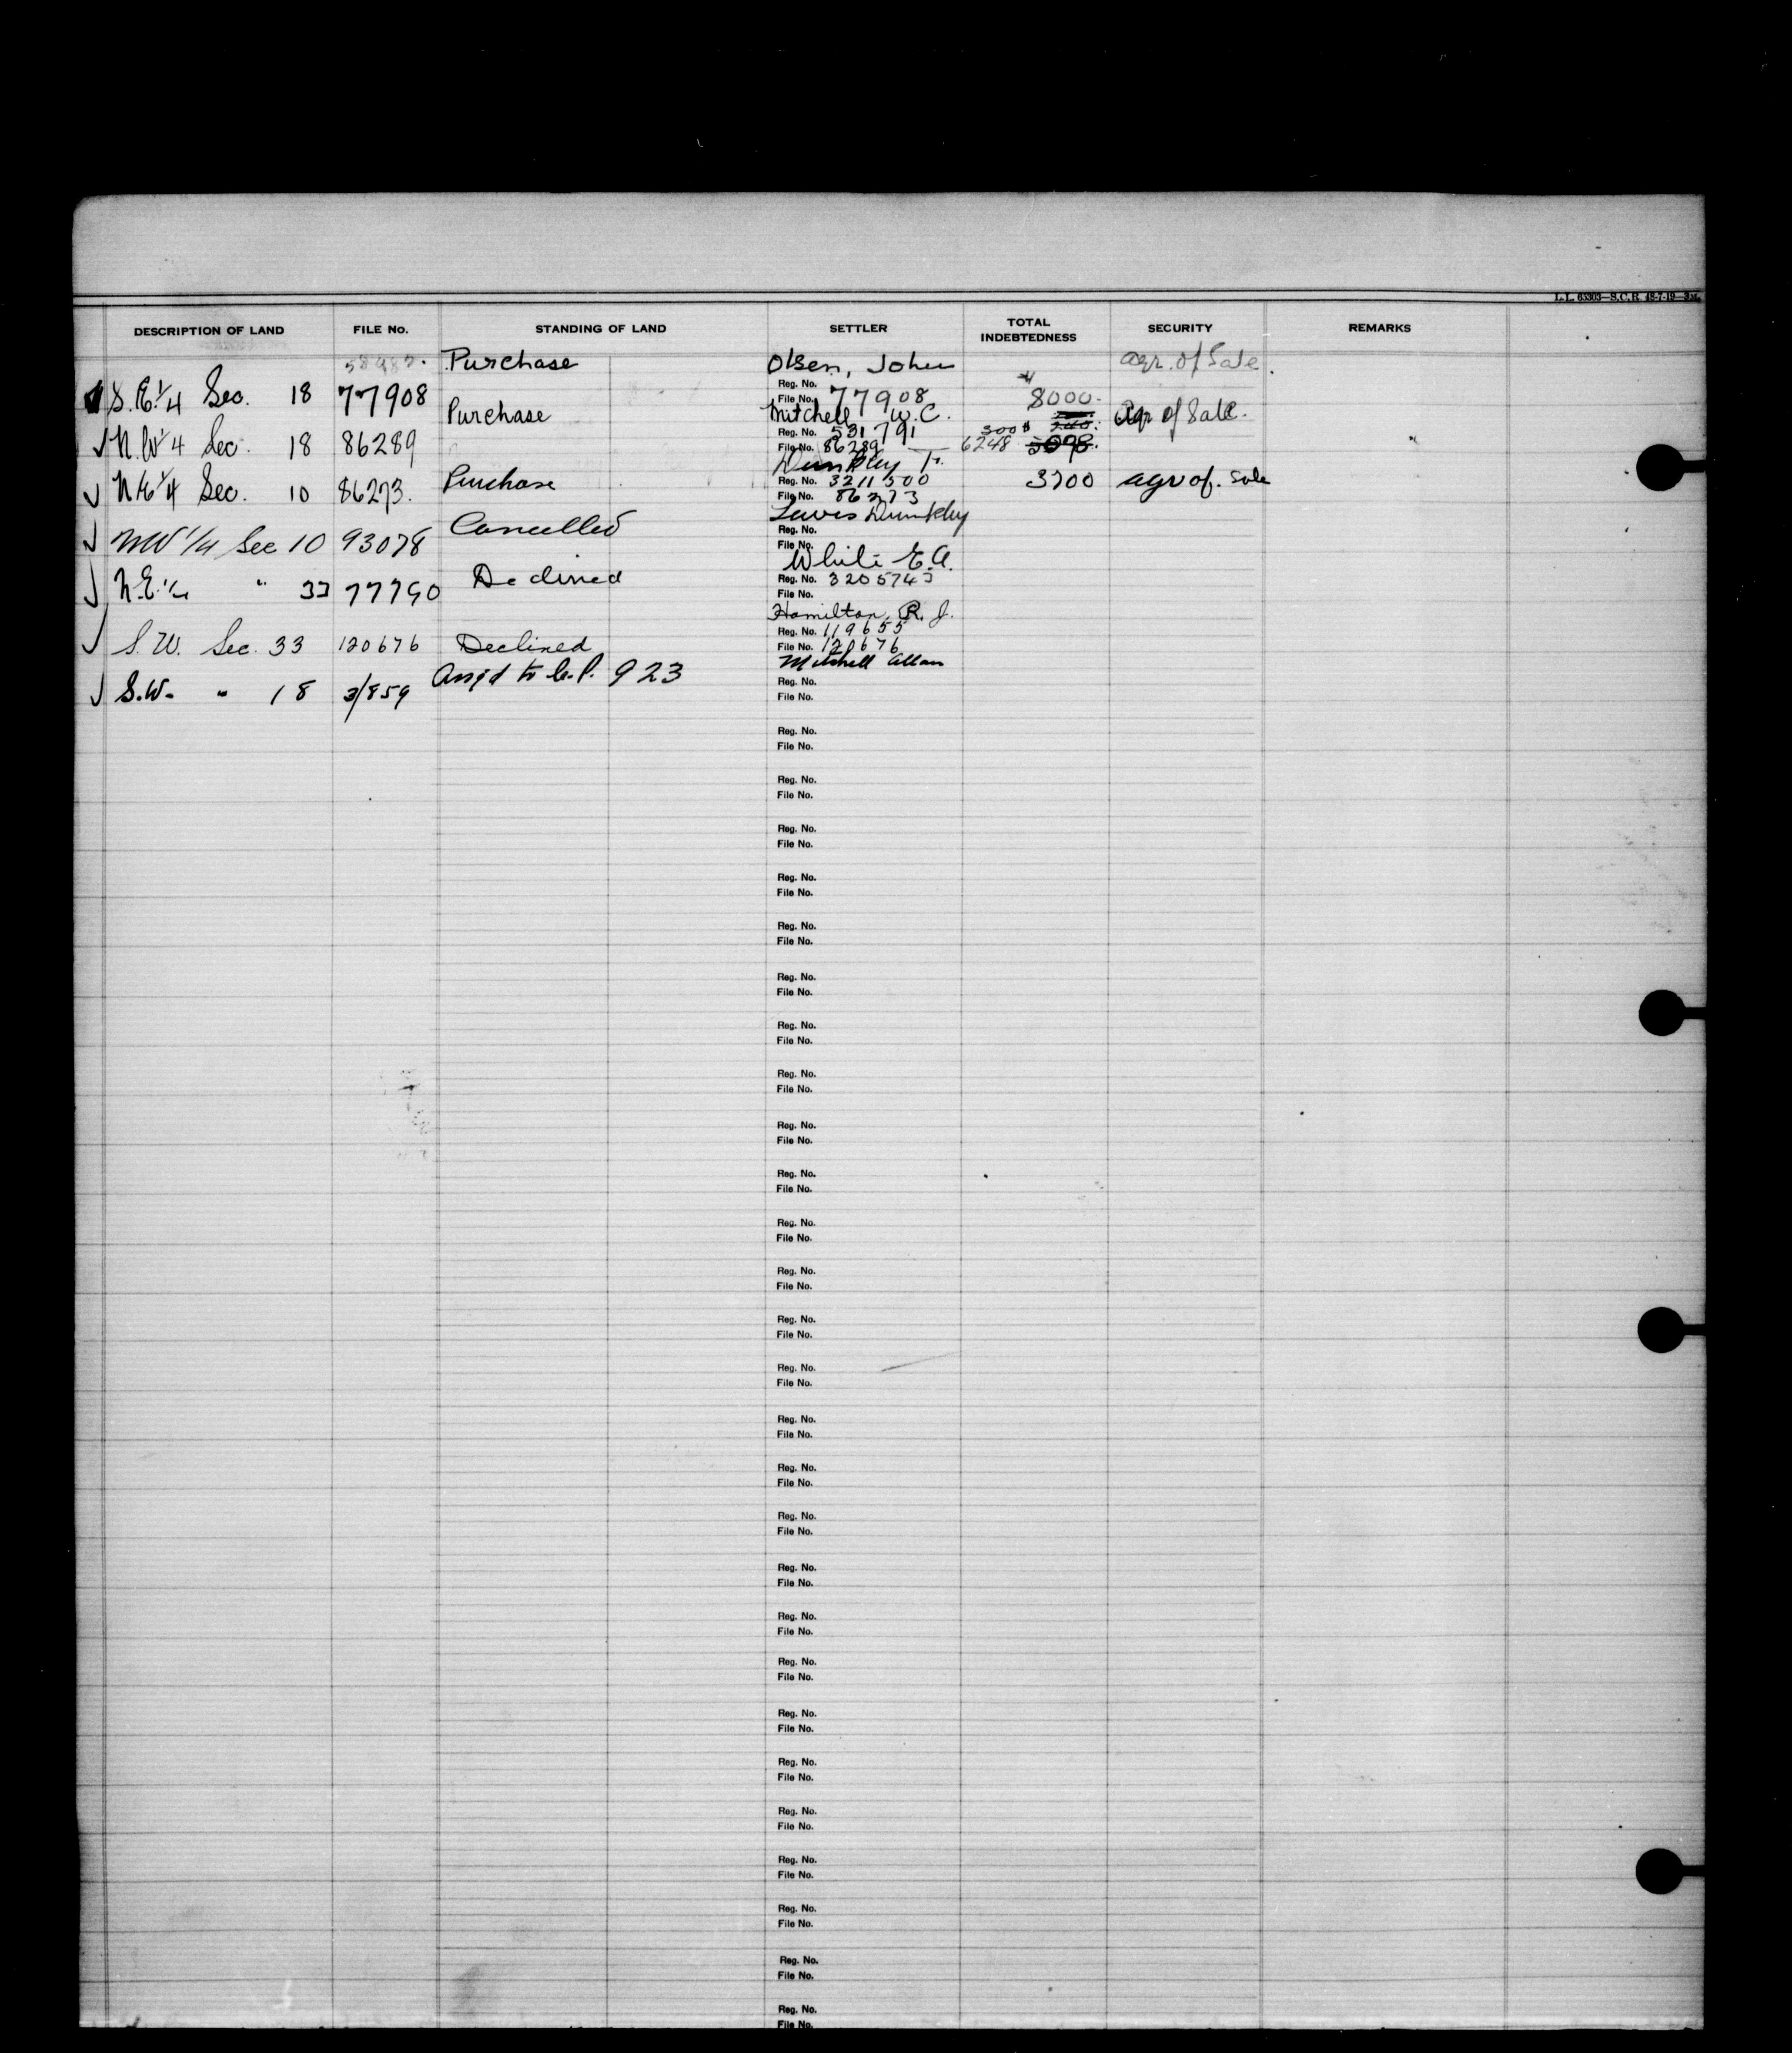 L.L. 63303—S.C.R. 48-7-19—3M.
DESCRIPTION OF LAND FILE No. STANDING OF LAND SETTLER TOTAL INDEBTEDNESS SECURITY REMARKS
Purchase Olsen, John agr. of Sale.
S.E.1/4 Sec. 18 77908 Reg. No. 8000.
File No. 77908
Purchase Mitchell W.C. Agr of Sale.
N.W1/4 Sec. 18 86289 Reg. No. 531791 300
File No. 86289 6248 5098.
Dunkley F.
N.E1/4 Sec. 10 86273. Purchase Reg. No. 3211500 3700 agr of. Sale
File No. 86273
Cancelled Lewis Dunkley
NW 1/4 Sec 10 93078 Reg. No.
File No.
Declined White E.A.
N.E. 1/4 " 33 77790 Reg. No. 3205743
File No.
Hamilton, R. J.
S.W. Sec. 33 120676 Declined Reg. No. 119655
File No. 120676
Assg'd to C.P. 923 Mitchell Allan
S.W. " 18 31859 Reg. No.
File No.
Reg. No.
File No.
Reg. No.
File No.
Reg. No.
File No.
Reg. No.
File No.
Reg. No.
File No.
Reg. No.
File No.
Reg. No.
File No.
Reg. No.
File No.
Reg. No.
File No.
Reg. No.
File No.
Reg. No.
File No.
Reg. No.
File No.
Reg. No.
File No.
Reg. No.
File No.
Reg. No.
File No.
Reg. No.
File No.
Reg. No.
File No.
Reg. No.
File No.
Reg. No.
File No.
Reg. No.
File No.
Reg. No.
File No.
Reg. No.
File No.
Reg. No.
File No.
Reg. No.
File No.
Reg. No.
File No.
Reg. No.
File No.
Reg. No.
File No.